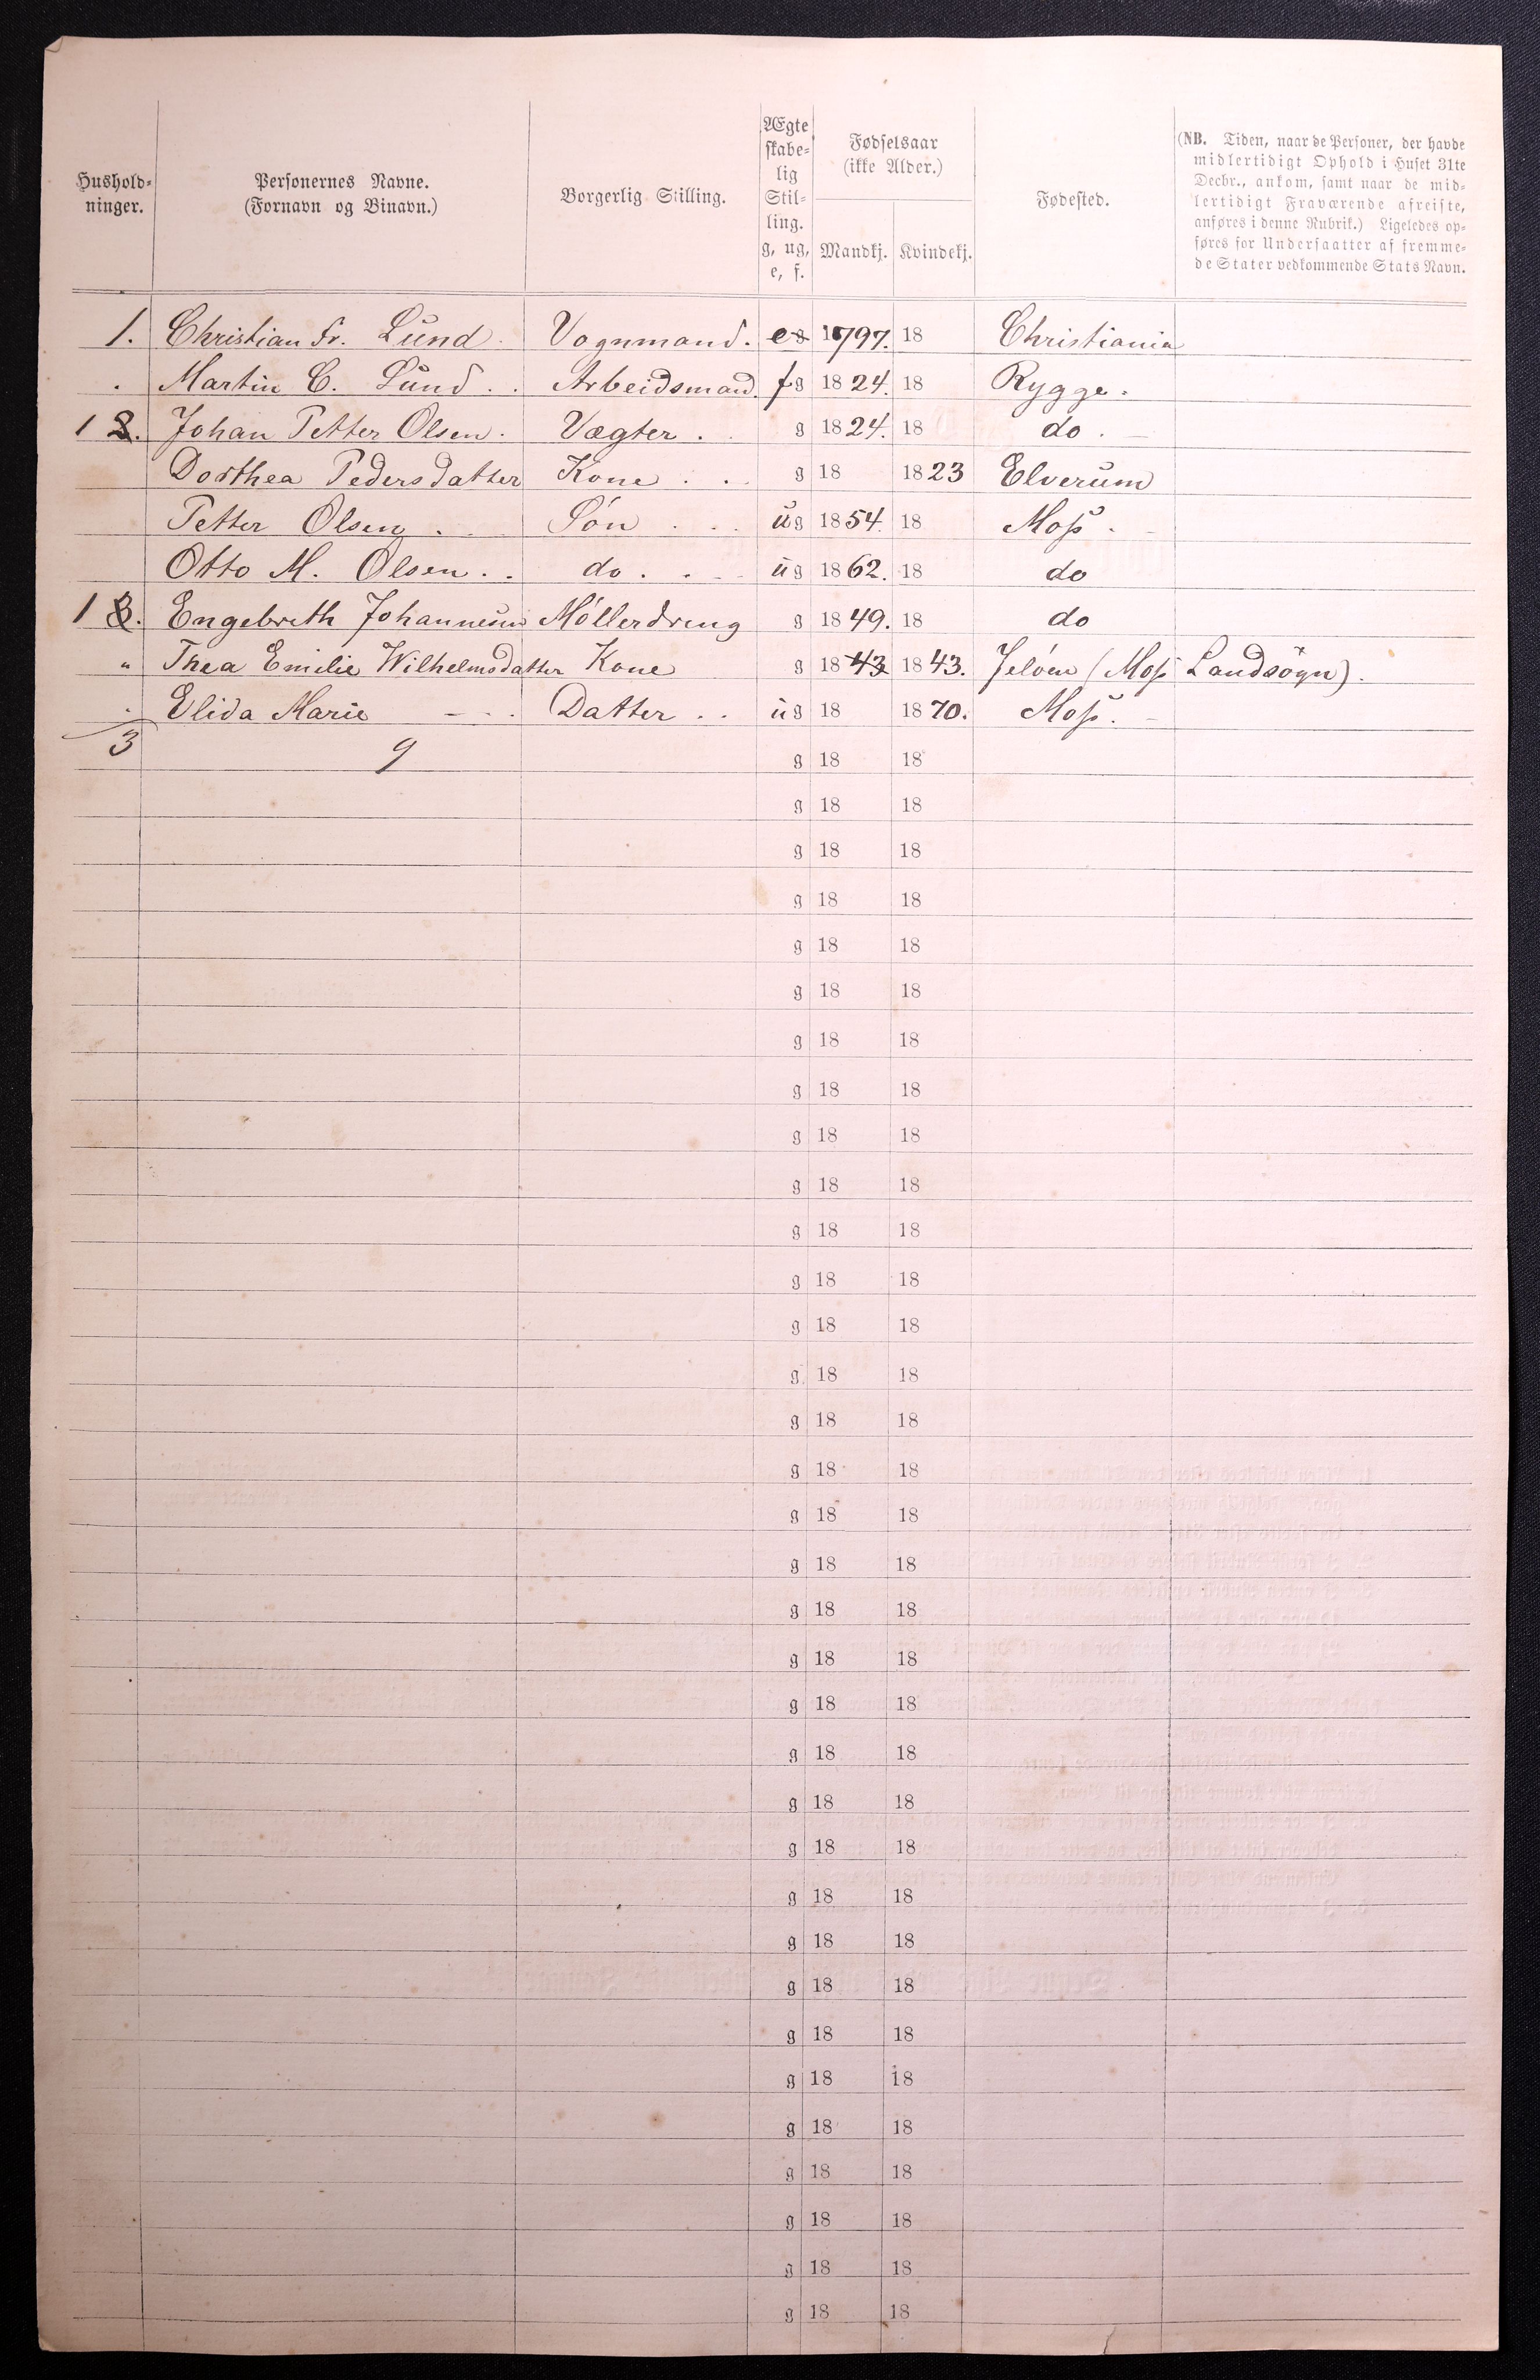 Hushold-ninger. | Personernes Navne. (Fornavn og Binavn.) | Borgerlig Stilling. | Ægteskabe-lig Stil-ling. g, ug, e, f. | Fødselsaar (ikke Alder.) Mandkj. | Kvindekj. | Fødested. | (NB. Tiden, naar de Personer, der havde midlertidigt Ophold i Huset 31te Decbr., ankom, samt naar de mid-lertidigt Fraværende afreiste, anføres i denne Rubrik.) Ligeledes op-føres for Undersaatter af fremme-de Stater vedkommende Stats Navn.
1. Christian Fr. Lund. Vognmand. e g 1797. 18 Christiania
. Martin C. Lund. Arbeidsmand. f g 1824. 18 Rygge.
1 2. Johan Petter Olsen. Vægter. g 1824. 18 do.
Dorthea Pedersdatter Kone g 18 1823 Elverum
Petter Olsen. Søn ug 1854. 18 Moss.
Otto M. Olsen. do. ug 1862. 18 do
1 3. Engebreth Johannesen Møllerdreng g 1849. 18 do
" Thea Emilie Wilhelmsdatter Kone g 1843 1843. Jeløen (Moss Landsogn).
. Elida Marie Datter ug 18 1870. Moss.
3 9 g 18 18
g 18 18
g 18 18
g 18 18
g 18 18
g 18 18
g 18 18
g 18 18
g 18 18
g 18 18
g 18 18
g 18 18
g 18 18
g 18 18
g 18 18
g 18 18
g 18 18
g 18 18
g 18 18
g 18 18
g 18 18
g 18 18
g 18 18
g 18 18
g 18 18
g 18 18
g 18 18
g 18 18
g 18 18
g 18 18
g 18 18
g 18 18
g 18 18
g 18 18